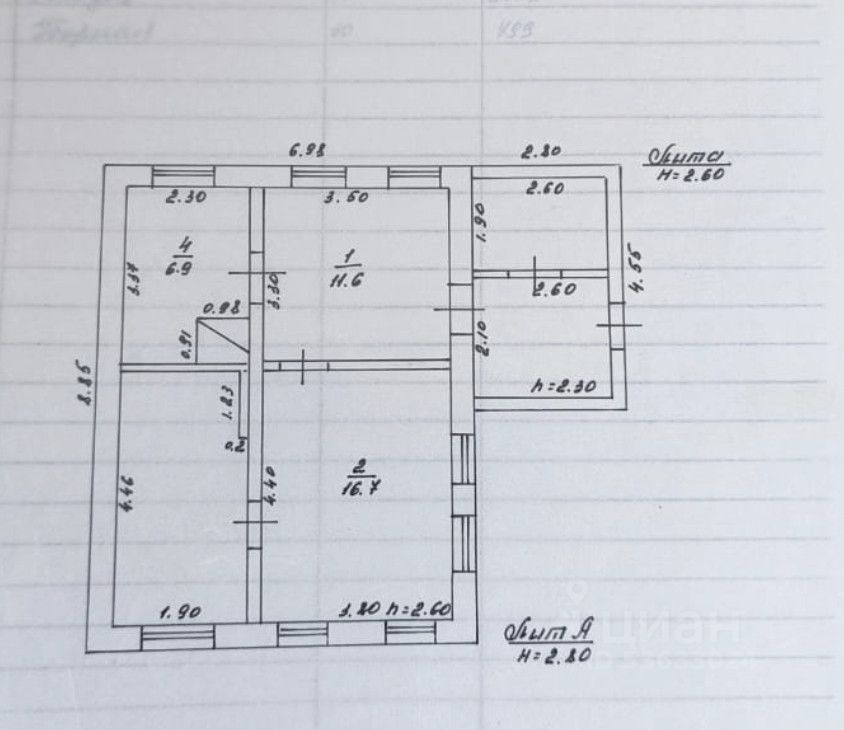 499
6.98
2.80
Лит а
H=2.60
2.30
3.50
2.60
1.90
4
6.9
1
11.6
3.37
3.30
4.55
2.60
0.98
0.91
2.10
8.85
h=2.30
1.23
0.2
4.46
4.40
2
16.7
1.90
3.80 h=2.60
Лит А
H=2.80
циан